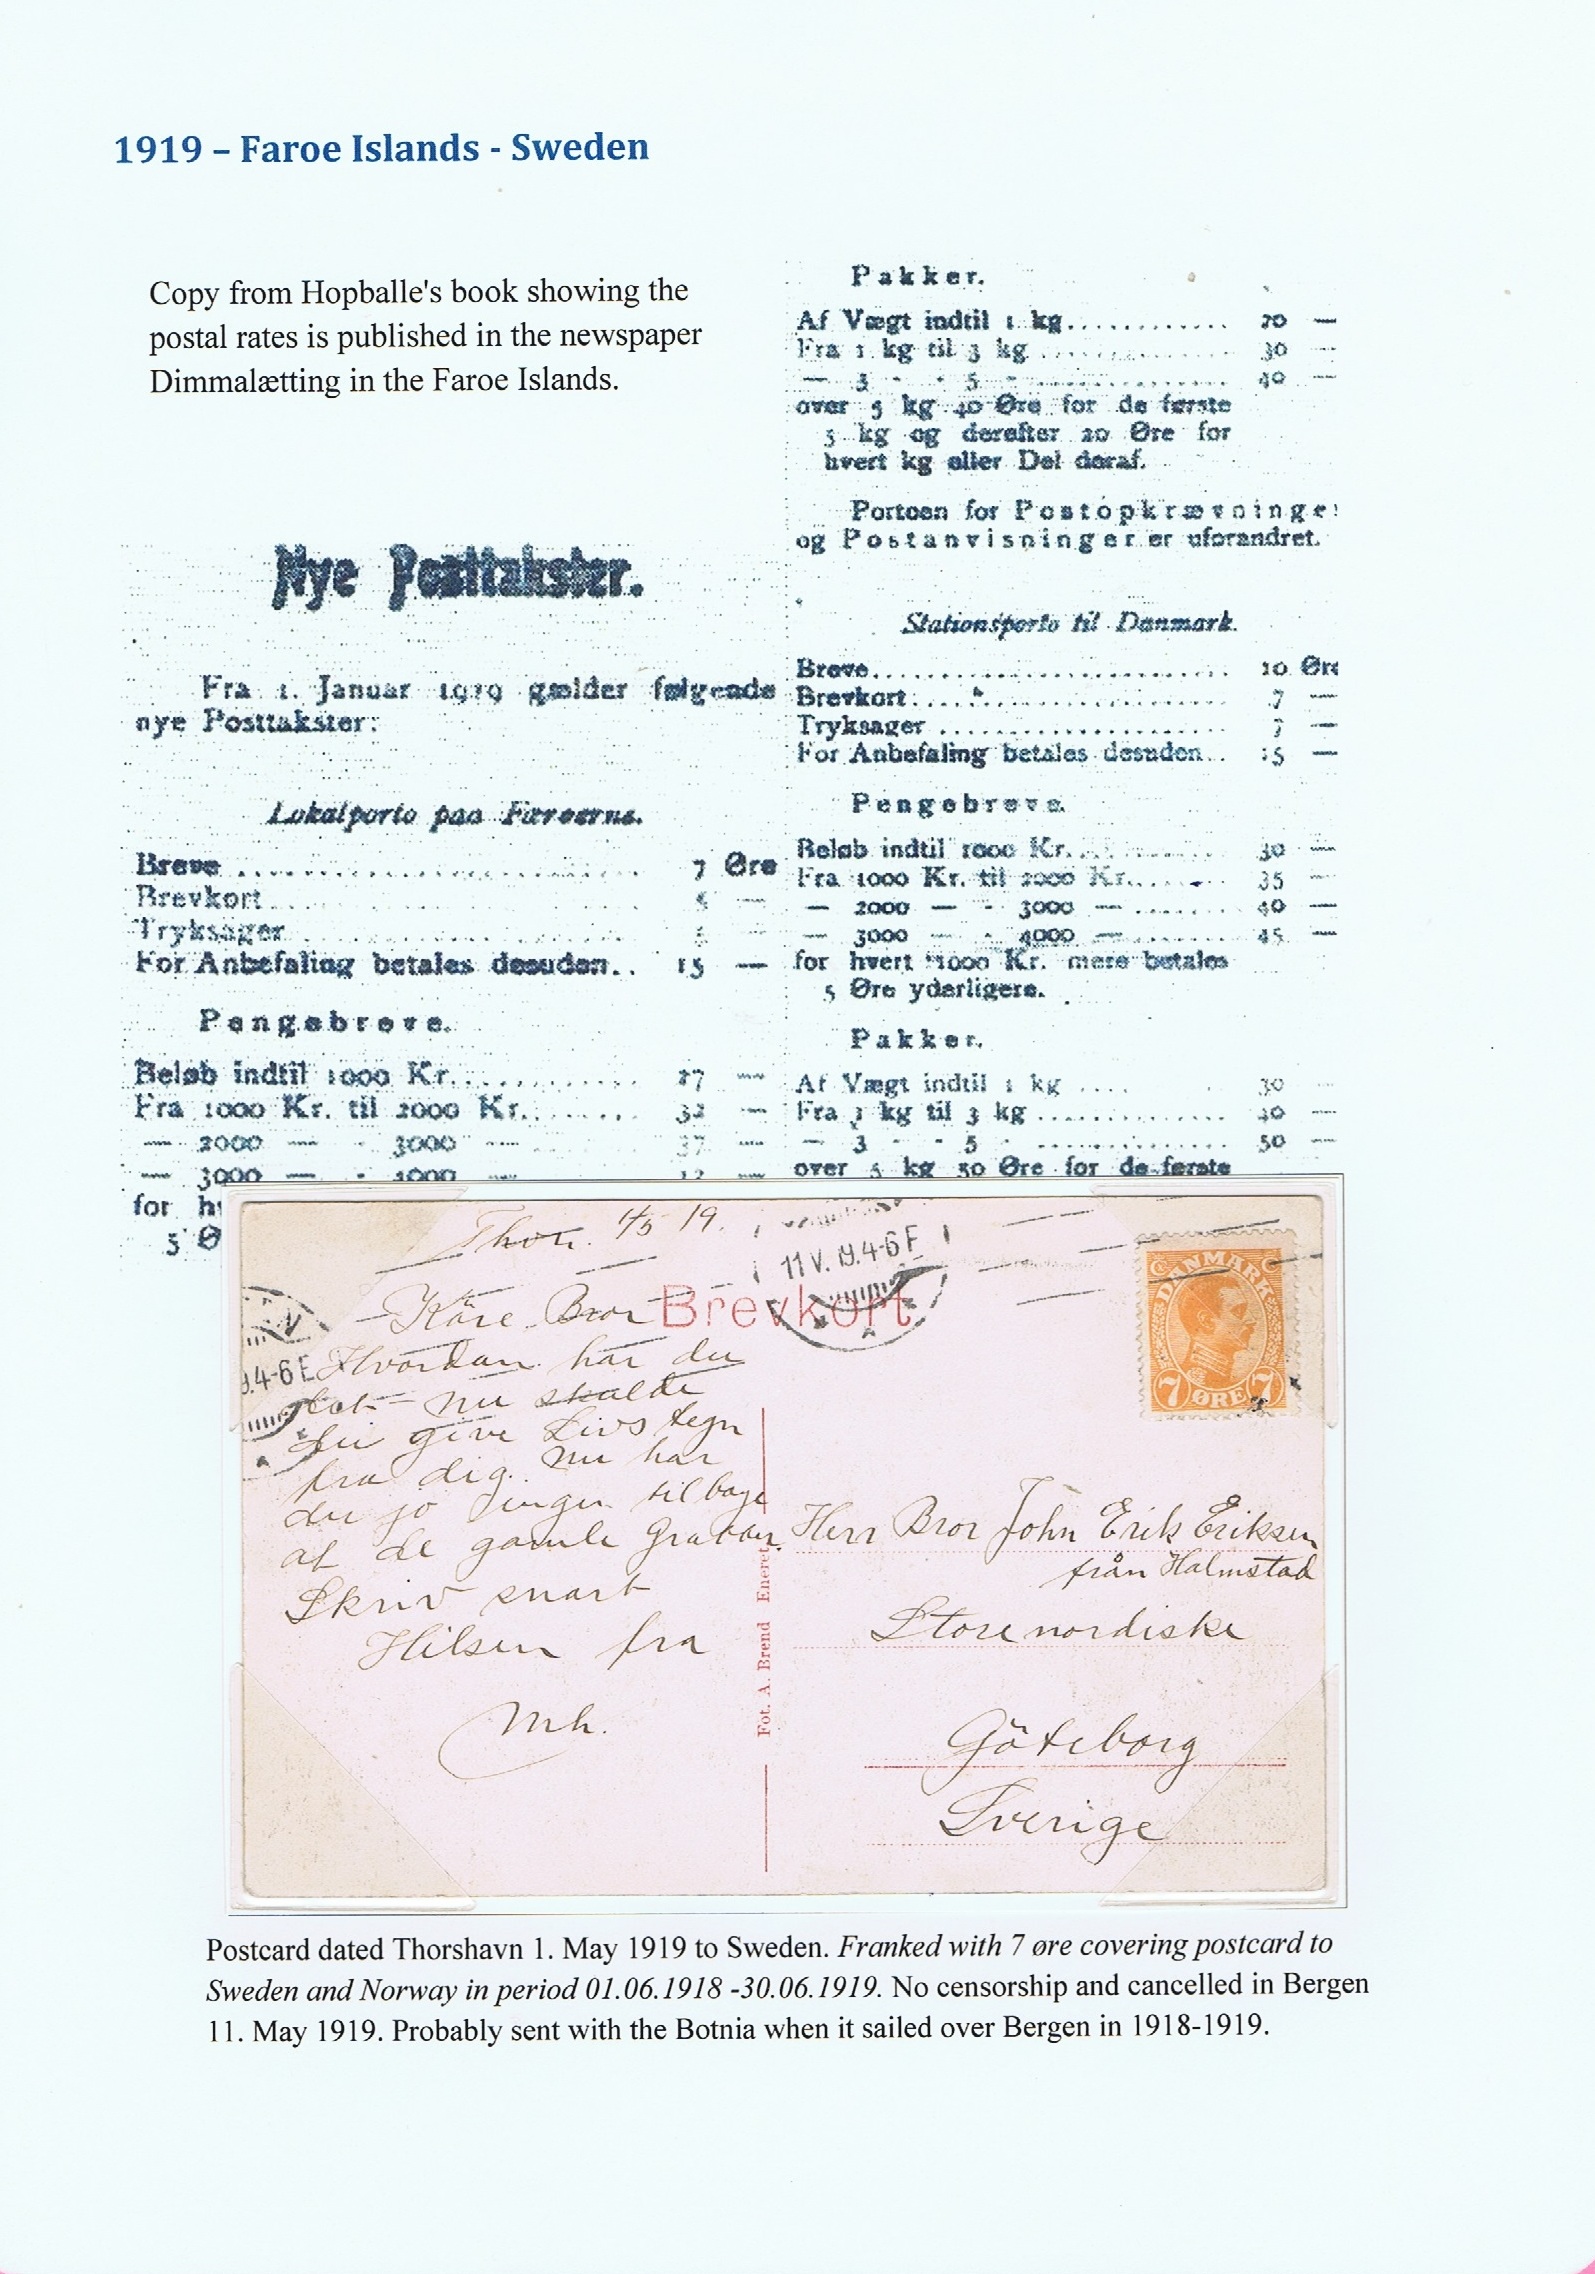 1919 – Faroe Islands - Sweden
Copy from Hopballe's book showing the
postal rates is published in the newspaper
Dimmalætting in the Faroe Islands.
Nye Posttakster.
Fra 1. Januar 1919 gælder følgende
nye Posttakster:
Lokalporto paa Færøerne.
Breve .............................. 7 Øre
Brevkort .............................. 5 —
Tryksager .............................. 5 —
For Anbefaling betales desuden.. 15 —
Pengebreve.
Beløb indtil 1000 Kr............. 27 —
Fra 1000 Kr. til 2000 Kr........ 32 —
— 2000 — - 3000 — 37 —
— 3000 — - 4000 —
for
5 Ø
Pakker.
Af Vægt indtil 1 kg............. 20 —
Fra 1 kg til 3 kg .............. 30 —
— 3 - - 5 - .................. 40 —
over 5 kg 40 Øre for de første
5 kg og derefter 20 Øre for
hvert kg eller Del deraf.
Portoen for Postopkrævninge
og Postanvisninger er uforandret.
Stationsporto til Danmark.
Breve.............................. 10 Øre
Brevkort.............................. 7 —
Tryksager .............................. 7 —
For Anbefaling betales desuden.. 15 —
Pengebreve.
Beløb indtil 1000 Kr............. 30 —
Fra 1000 Kr. til 2000 Kr........ 35 —
— 2000 — - 3000 — ........ 40 —
— 3000 — - 4000 — ........ 45 —
for hvert 1000 Kr. mere betales
5 Øre yderligere.
Pakker.
Af Vægt indtil 1 kg .... 30 —
Fra 1 kg til 3 kg .............. 40 —
— 3 - - 5 - .................. 50 —
over 5 kg 50 Øre for de første
Thvn. 1/5 19.
11 V. 19. 4-6 F
Brevkort
DANMARK
7 ØRE 7
9.4-6 F
Käre Bror
Hvordan har du
det nu skulde
du give Livs tegn
fra dig. Nu har
du jo ingen tilbage
af de gamle
Skriv snart
Hilsen fra
Mh.
Fot. A. Brend Eneret
Herr Bror John Erik Eriksen
från Halmstad
Store nordiske
Göteborg
Sverige
Postcard dated Thorshavn 1. May 1919 to Sweden. Franked with 7 øre covering postcard to
Sweden and Norway in period 01.06.1918 -30.06.1919. No censorship and cancelled in Bergen
11. May 1919. Probably sent with the Botnia when it sailed over Bergen in 1918-1919.